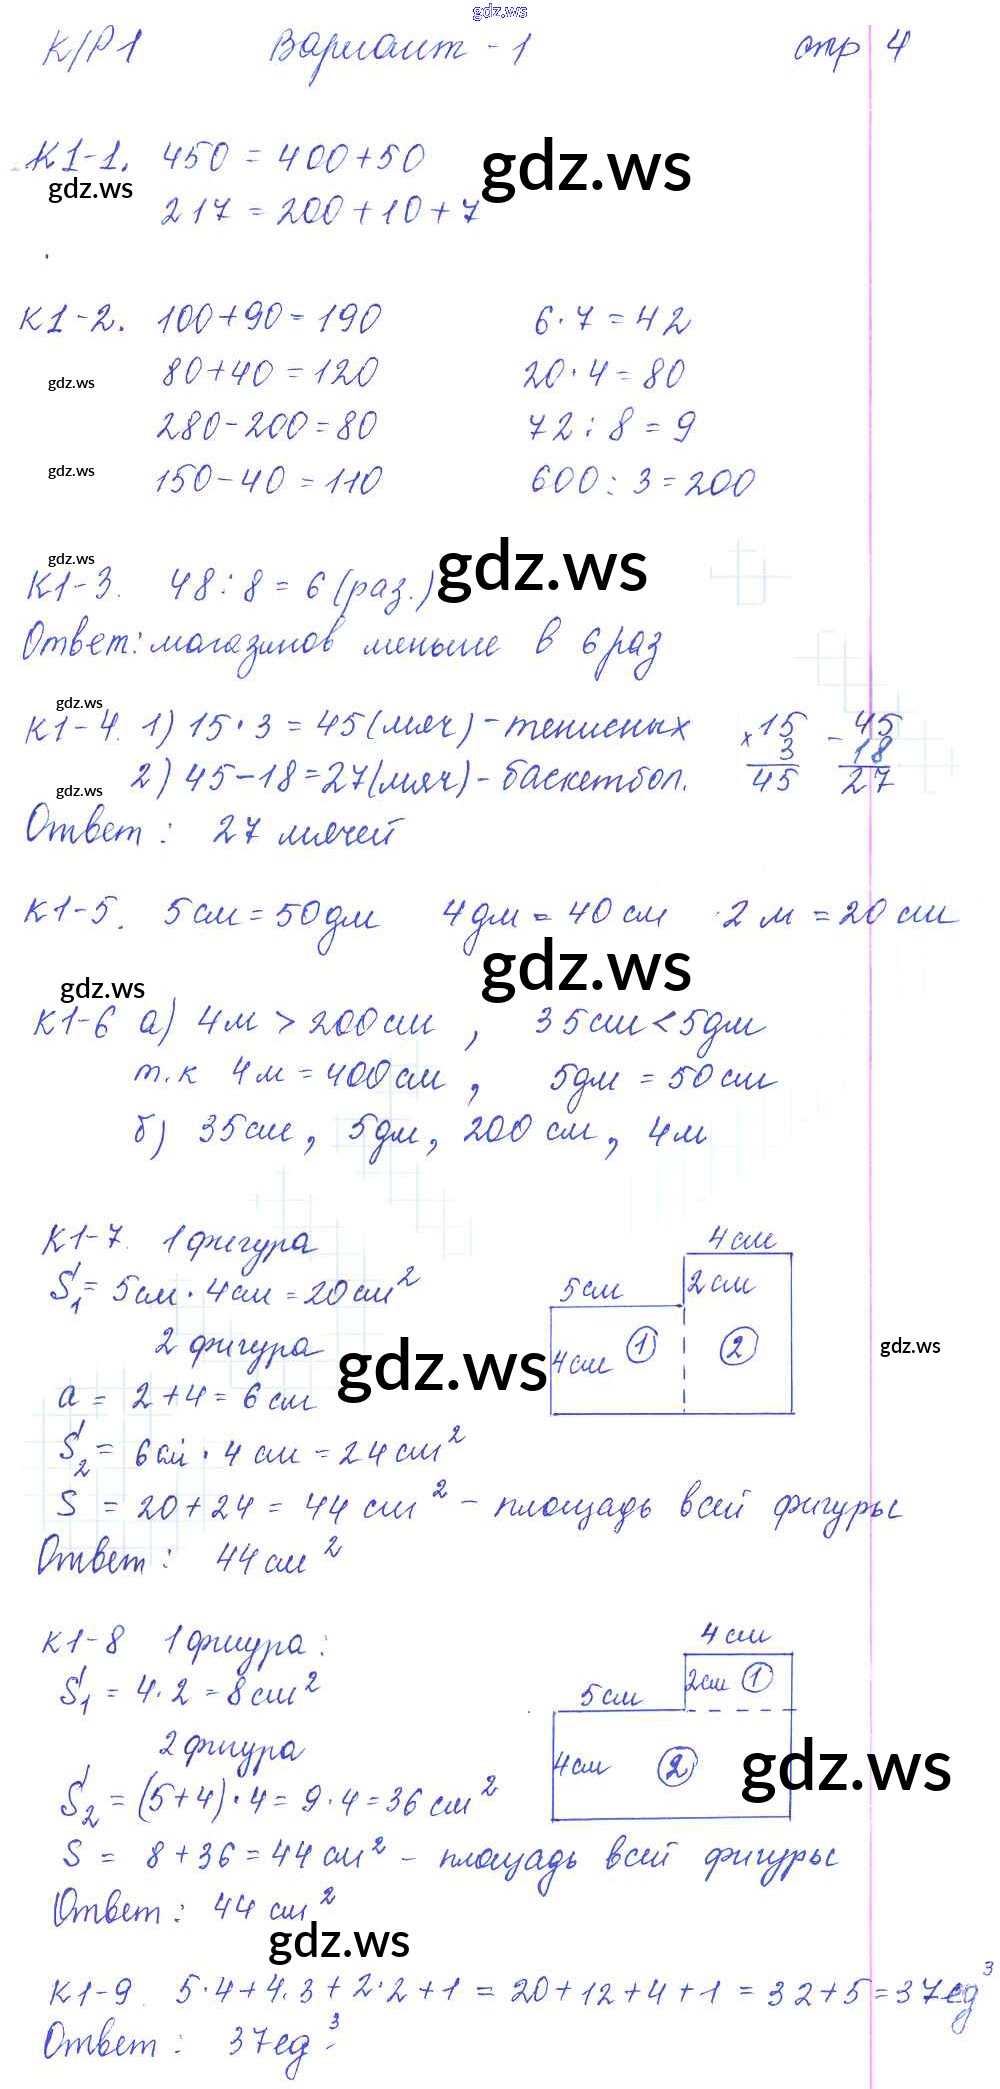 gdz.ws
К/Р1 Вариант - 1 стр 4
К1-1. 450 = 400+50 gdz.ws
gdz.ws 217 = 200+10+7
К1-2. 100+90=190 6·7=42
gdz.ws 80+40=120 20·4=80
280-200=80 72:8=9
gdz.ws 150-40=110 600:3=200
gdz.ws
К1-3. 48:8=6(раз.) gdz.ws
Ответ: магазинов меньше в 6 раз
gdz.ws
К1-4. 1) 15·3=45(мяч)-тенисных ×15 3 45 -45 18 27
2) 45-18=27(мяч)-баскетбол.
gdz.ws
Ответ: 27 мячей
К1-5. 5см=50дм 4дм=40см 2м=20см
gdz.ws gdz.ws
К1-6 а) 4м>200см, 35см<5дм
т.к 4м=400см, 5дм=50см
б) 35см, 5дм, 200см, 4м
К1-7. 1 фигура 4см
S₁=5см·4см=20см² 5см 2см
2 фигура gdz.ws 4см 1 2 gdz.ws
a = 2+4=6см
S₂=6см·4см=24см²
S = 20+24=44см² - площадь всей фигуры
Ответ: 44см²
К1-8 1 фиура: 4см
S₁=4·2=8см² 5см 2см 1
2 фиура
4см 2 gdz.ws
S₂=(5+4)·4=9·4=36см²
S = 8+36=44см² - площадь всей фигуры
Ответ: 44см²
gdz.ws
К1-9. 5·4+4·3+2·2+1=20+12+4+1=32+5=37ед³
Ответ: 37ед³